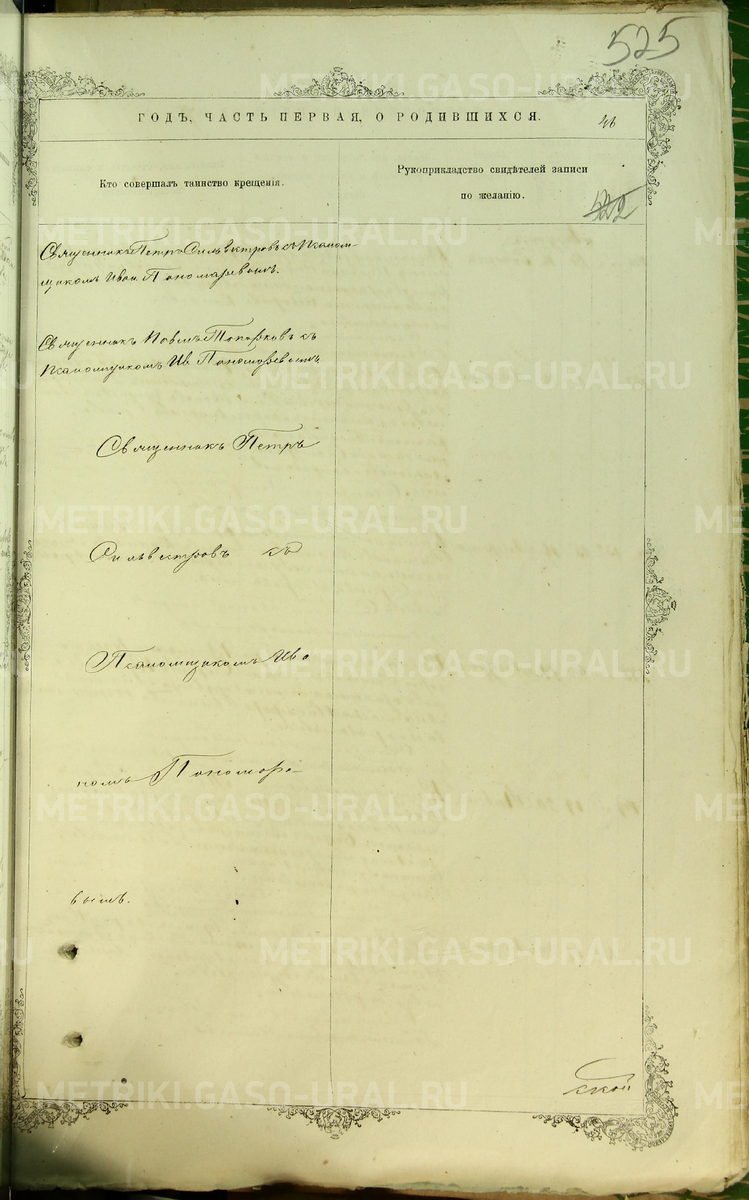 525
ГОДЪ, ЧАСТЬ ПЕРВАЯ, О РОДИВШИХСЯ.
46
Кто совершалъ таинство крещенія.
Рукоприкладство свидѣтелей записи
по желанію.
422
Священникъ Петръ Сильвестровъ съ Псалом-
щикомъ Иван. Пономаревымъ.
Священникъ Топорковъ съ
Псаломщикомъ Ив Пономаревымъ
Священникъ Петръ
Сильвестровъ съ
Псаломщикомъ Ива
номъ Пономаре-
вымъ.
ской
METRIKI.GASO-URAL.RU